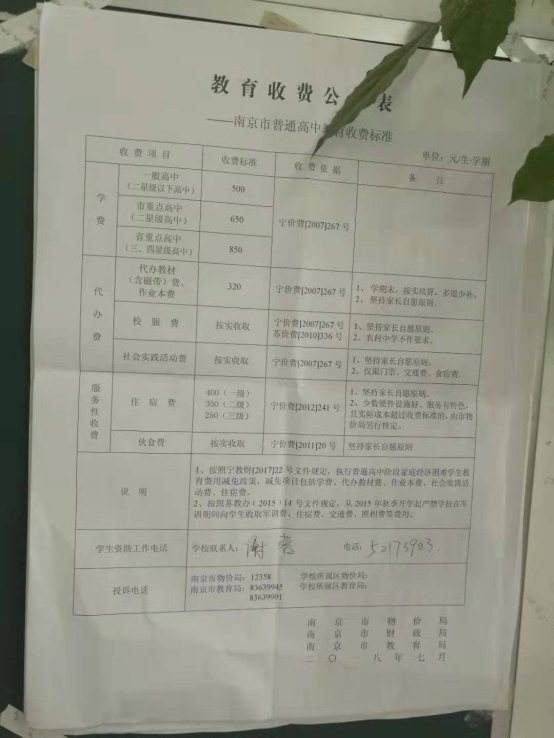 教育收费公 表
——南京市普通高中教育收费标准
单位：元/生·学期
收费项目 收费标准 收费依据 备注
学费
一般高中
（二星级以下高中） 500
市重点高中
（二星级高中） 650
宁价费[2007]267号
省重点高中
（三、四星级高中） 850
代办费
代办教材
（含磁带）费、
作业本费
320
宁价费[2007]267号
1、学期末，按实结算，多退少补。
2、坚持家长自愿原则。
校服费 按实收取
宁价费[2007]267号
苏价费[2010]336号
1、坚持家长自愿原则。
2、农村中学不作要求。
社会实践活动费 按实收取 宁价费[2007]267号
1、坚持家长自愿原则。
2、仅限门票、交通费、食宿费。
服务性收费
住宿费
400（一级）
350（二级）
250（三级）
宁价费[2012]241号
1、坚持家长自愿原则。
2、少数硬件设施好、服务有特色，
且实际成本超过收费标准的，由市物
价局另行核定。
伙食费 按实收取 宁价费[2011]20号 坚持家长自愿原则
说明
1、按照宁教财[2017]22号文件规定，执行普通高中阶段家庭经济困难学生教
育费用减免政策，减免项目包括学费、代办教材费、作业本费、社会实践活
动费、住宿费。
2、按照苏教办〔2015〕14号文件规定，从2015年秋季开学起严禁学校在军
训期间向学生收取军训费、住宿费、交通费、照相费等费用。
学生资助工作电话 学校联系人： 电话：52173903
投诉电话
南京市物价局：12358 学校所属区物价局：
南京市教育局：83639945 学校所属区教育局：
83639901
南京市物价局
南京市财政局
南京市教育局
二〇一八年七月